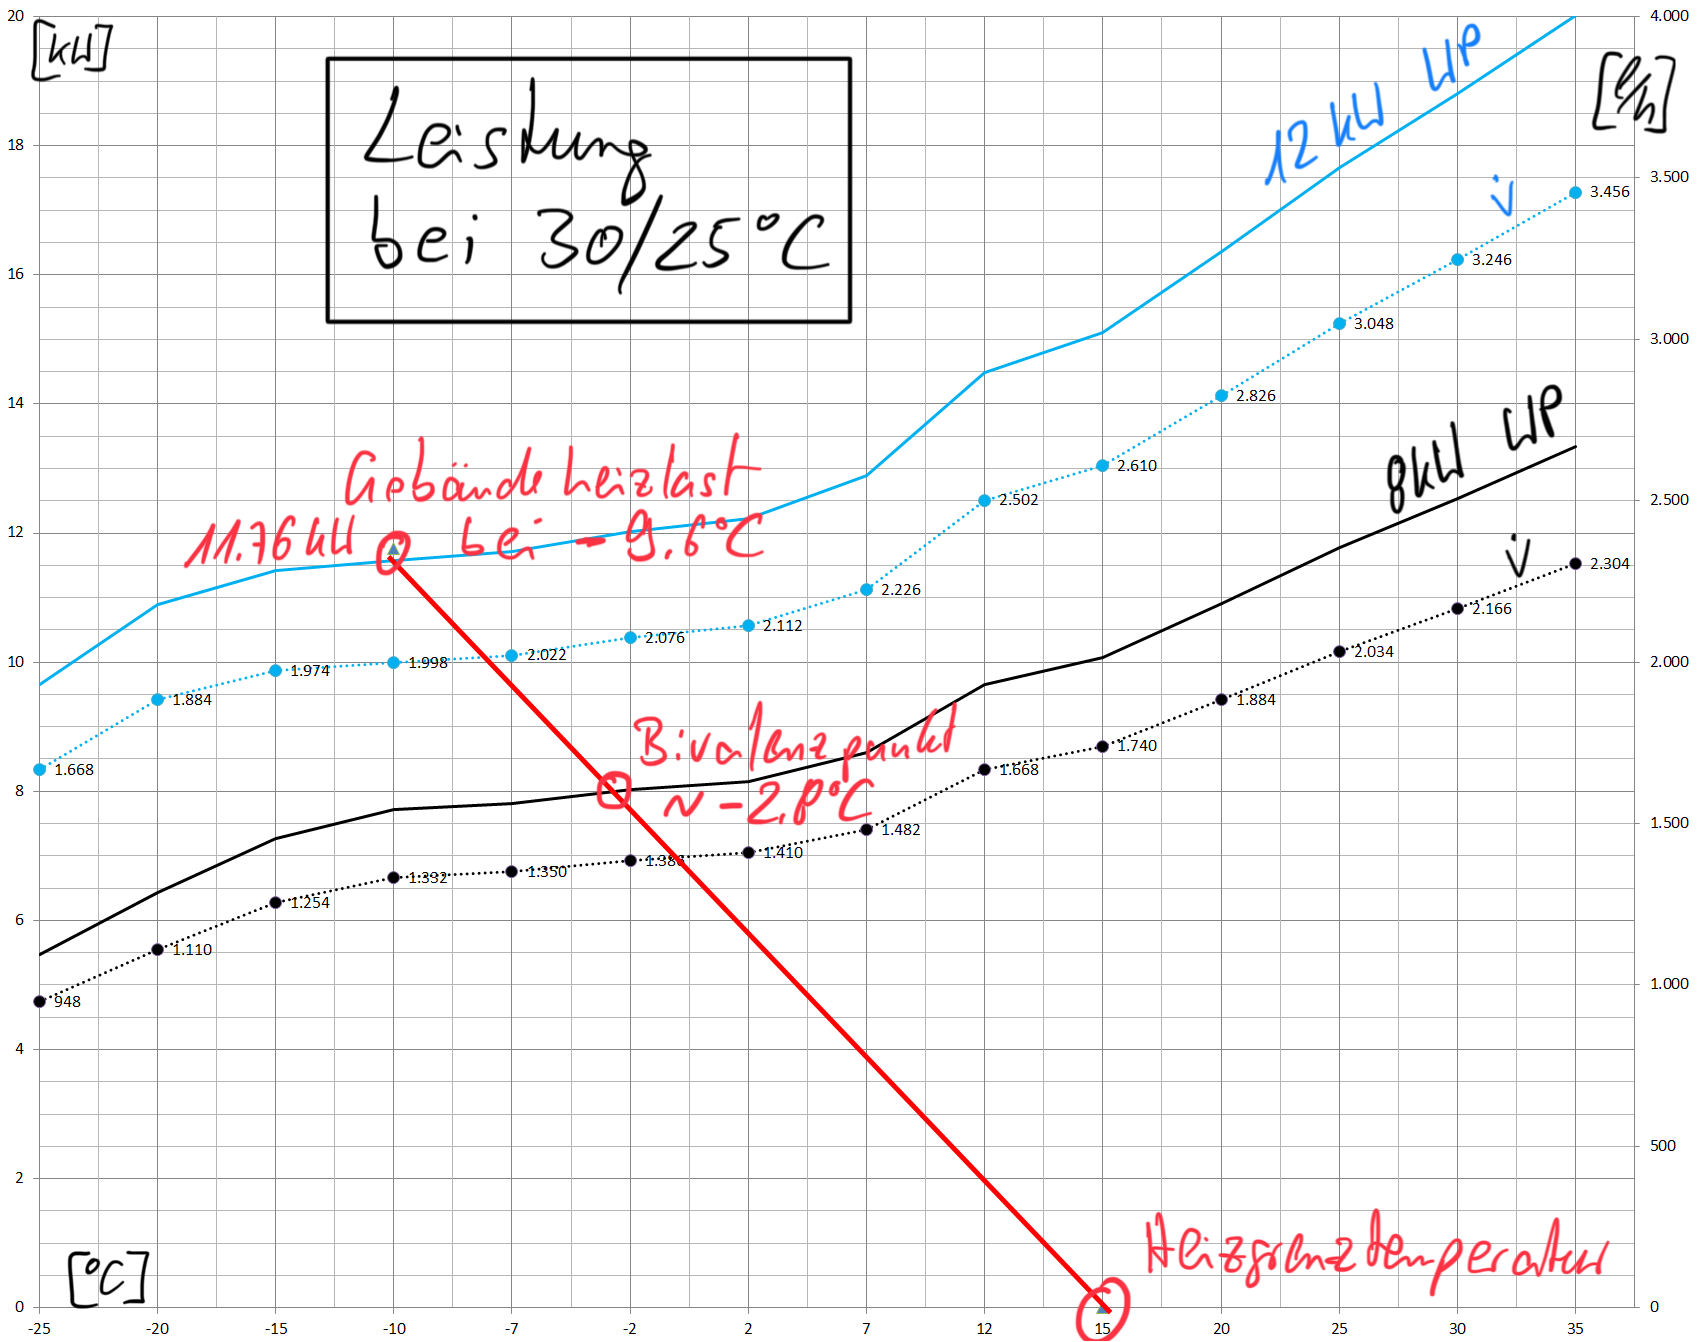 20
[kW]
18
16
14
12
10
8
6
4
2
0
Leistung
bei 30/25°C
12 kW WP
V̇
[l/h]
4.000
3.500
3.000
2.500
2.000
1.500
1.000
500
0
3.456
3.246
3.048
2.826
2.610
2.502
2.226
2.112
2.076
2.022
1.998
1.974
1.884
1.668
8kW WP
V̇
2.304
2.166
2.034
1.884
1.740
1.668
1.482
1.410
1.350
1.332
1.254
1.110
948
Gebäudeheizlast
11.76 kW bei -9.6°C
Bivalenzpunkt
~ -2.8°C
Heizgrenztemperatur
[°C]
-25 -20 -15 -10 -7 -2 2 7 12 15 20 25 30 35